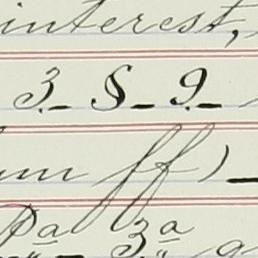 interest,
3_ S_ 9_
um ff)_
Pa 3a